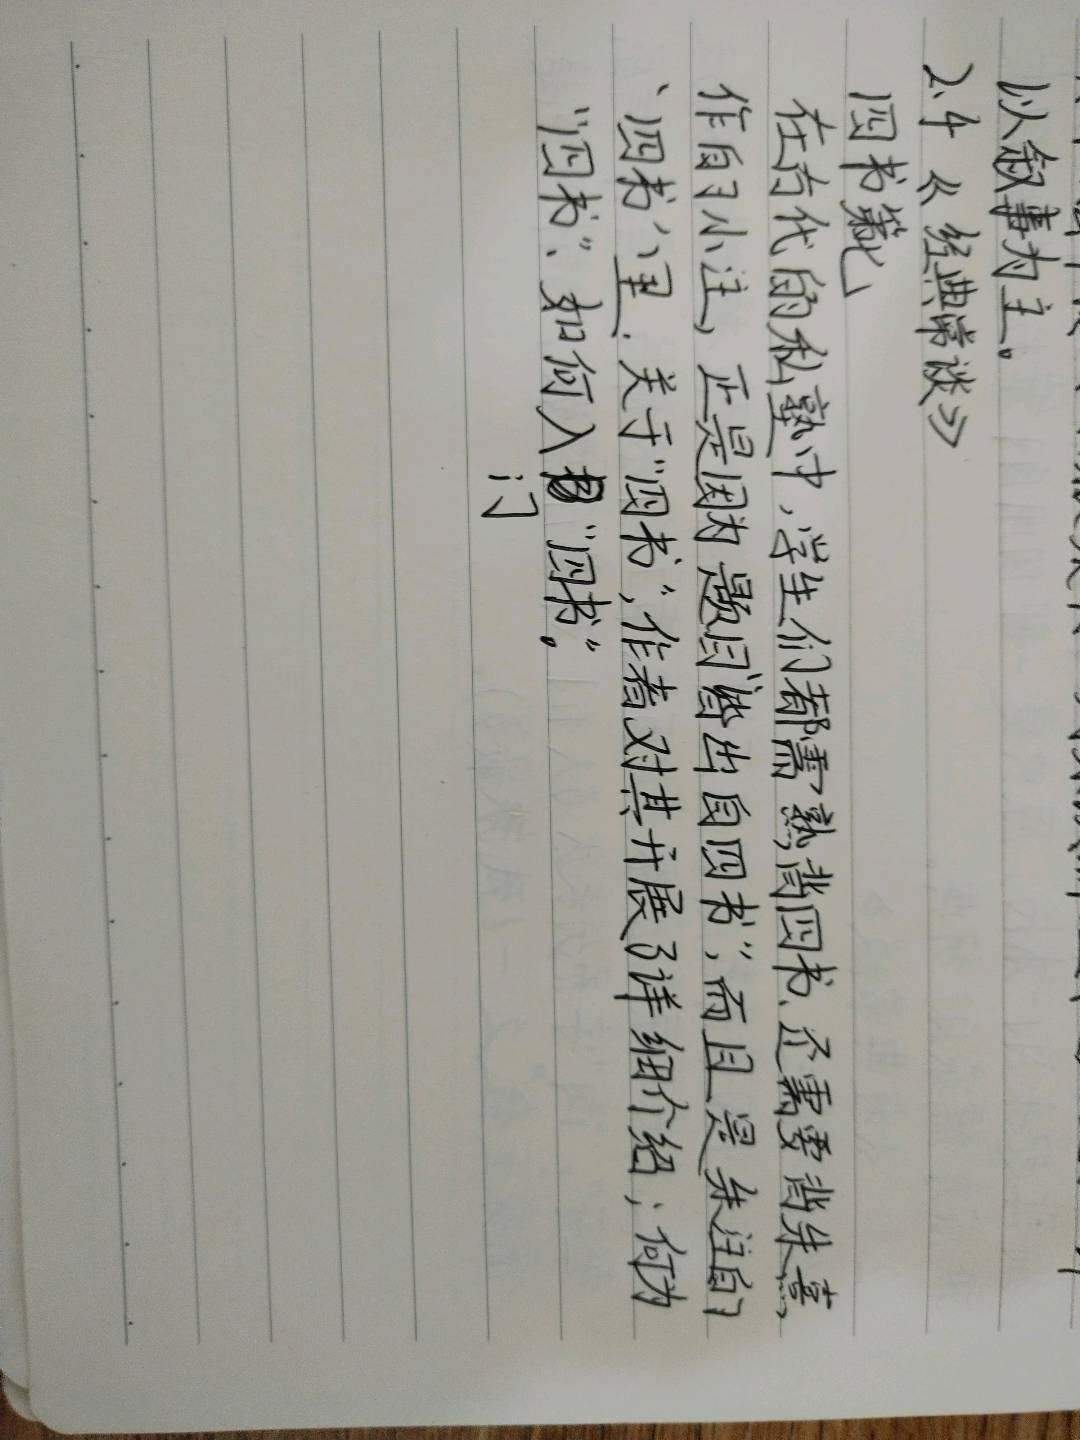 以叙事为主。
2.4《经典常谈》
四书第七
在古代的私塾中,学生们都需熟背四书、还需要背朱熹
作的小注,正是因为题目皆出自四书”,而且是朱注的
‘四书’里.关于“四书”,作者对其开展了详细介绍;何为
“四书”、如何入“四书”。
门